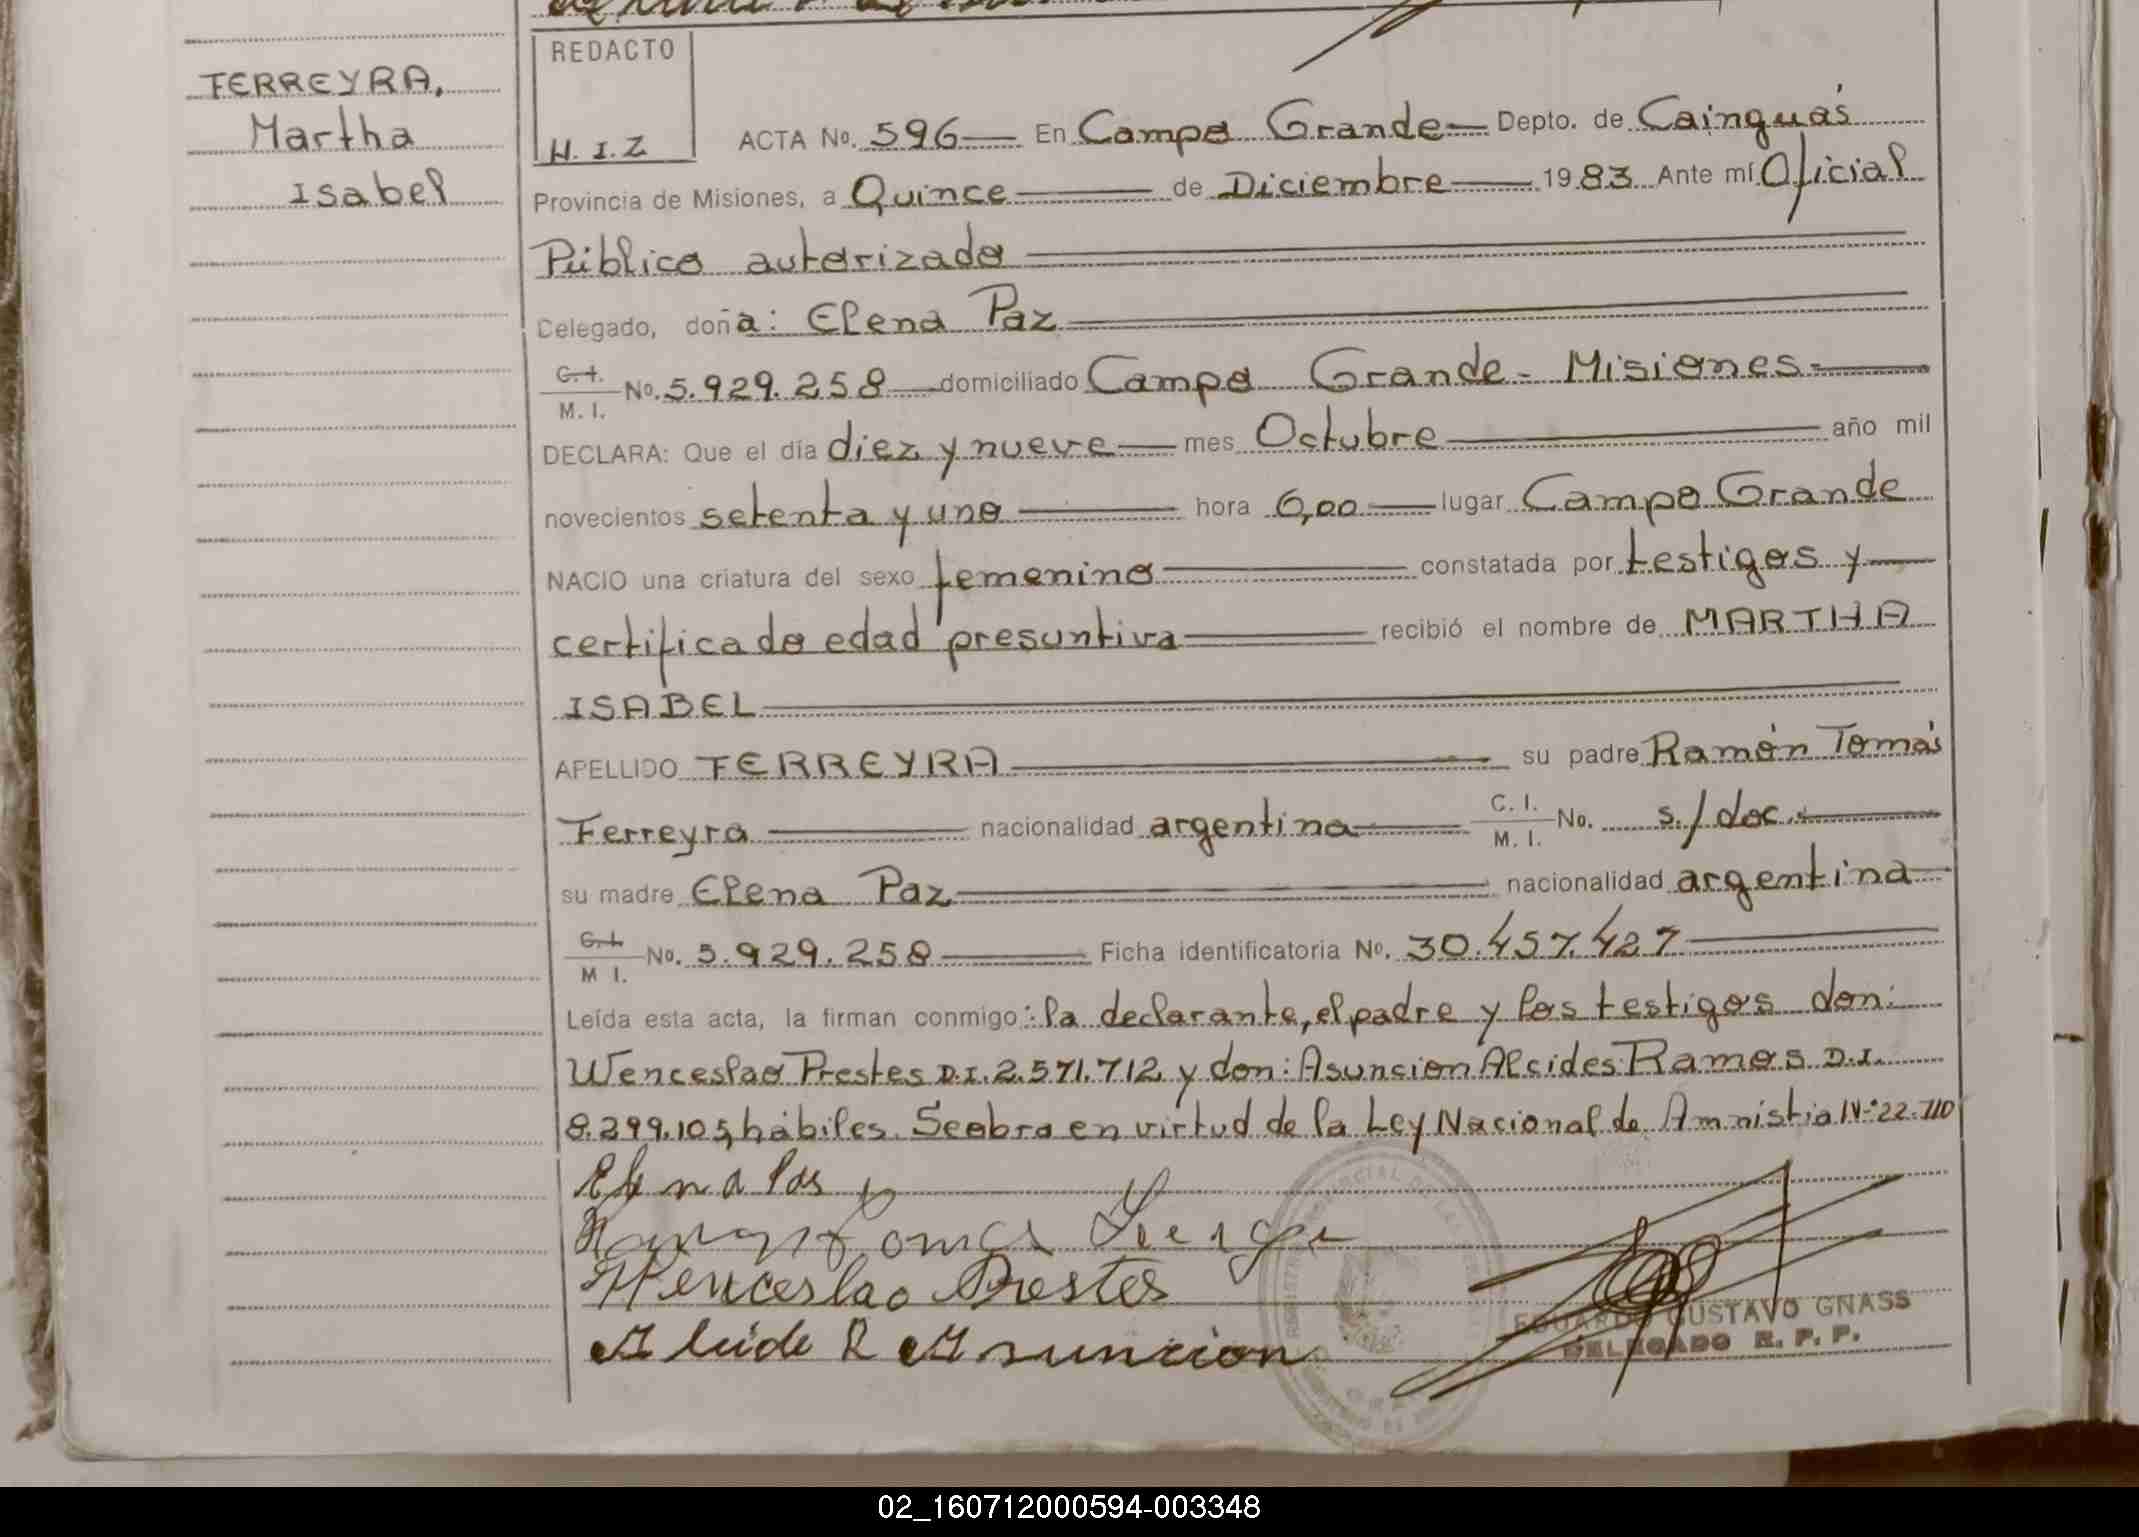 FERREYRA,
Martha
Isabel
REDACTO
H. I. Z
ACTA No. 596 En Campo Grande Depto. de Cainguás
Provincia de Misiones, a Quince de Diciembre 1983 Ante mí Oficial
Público autorizado
Delegado, doña: Elena Paz
C. I. M. I. No. 5.929.258 domiciliado Campo Grande - Misiones
DECLARA: Que el día diez y nueve mes Octubre año mil
novecientos setenta y uno hora 6,00 lugar Campo Grande
NACIO una criatura del sexo femenino constatada por testigos y
certificado edad presuntiva recibió el nombre de MARTHA
ISABEL
APELLIDO FERREYRA su padre Ramón Tomás
Ferreyra nacionalidad argentina C. I. M. I. No. s./doc.
su madre Elena Paz nacionalidad argentina
C. I. M I. No. 5.929.258 Ficha identificatoria No. 30.457.427
Leída esta acta, la firman conmigo: la declarante, el padre y los testigos don:
Wenceslao Prestes D.I. 2.571.712 y don: Asuncion Alcides Ramos D.I.
8.299.105, hábiles. Se obra en virtud de la Ley Nacional de Amnistia Nº 22.710
Elena Pas
Wenceslao Prestes
Alcide R Asuncion
EDUARDO GUSTAVO GNASS
DELEGADO R. P. P.
02_160712000594-003348